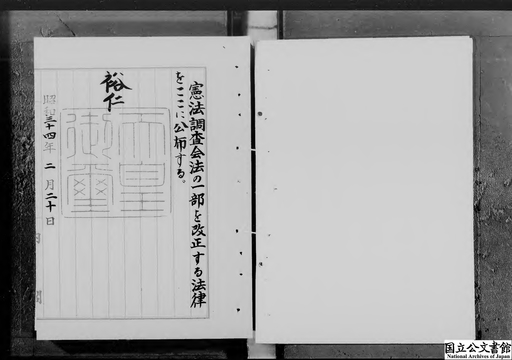 憲法調査会法の一部を改正する法律
をここに公布する。
裕仁
天皇
御璽
昭和三十四年二月二十日
国立公文書館
National Archives of Japan